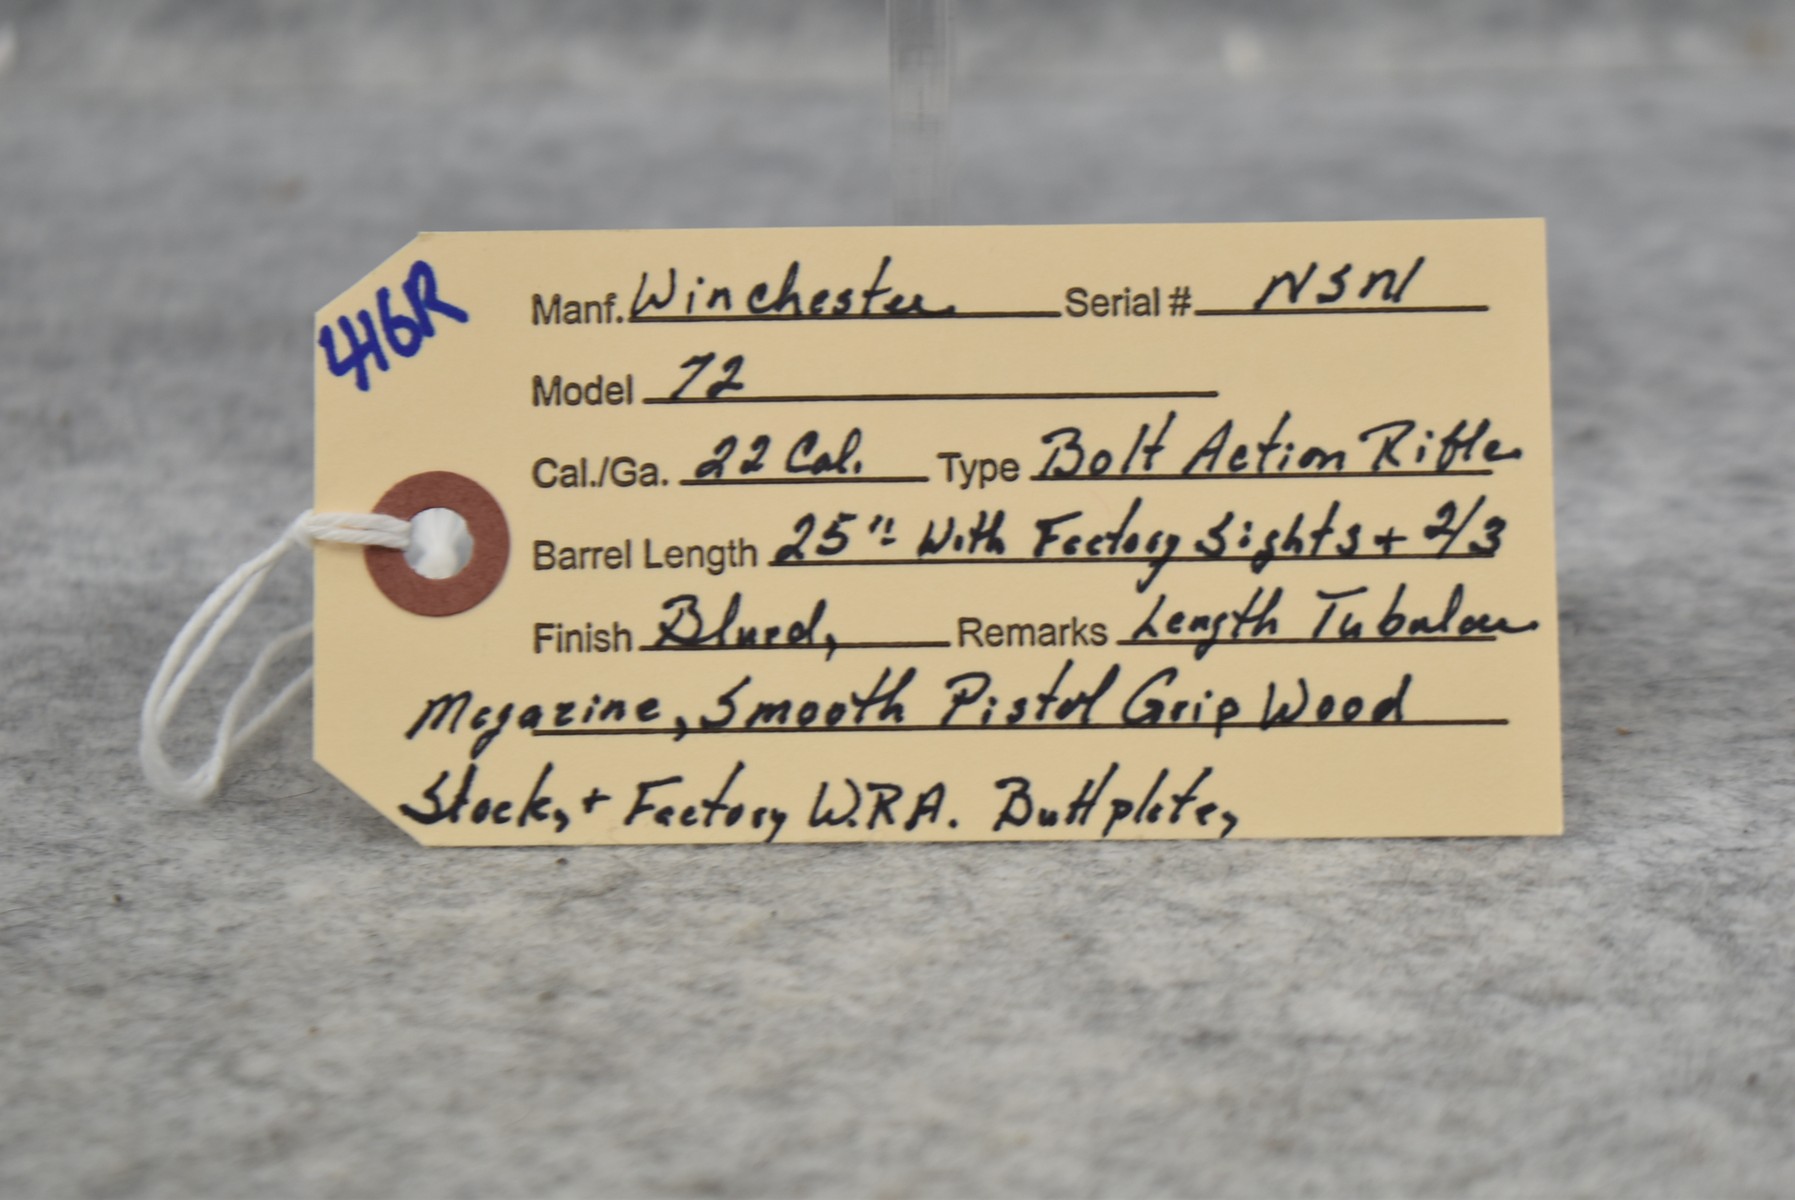 416R
Manf. Winchester Serial # NSN
Model 72
Cal./Ga. 22 Cal. Type Bolt Action Rifle
Barrel Length 25" With Factory Sights + 2/3
Finish Blued, Remarks Length Tubular
Magazine, Smooth Pistol Grip Wood
Stock, + Factory W.R.A. Buttplate,